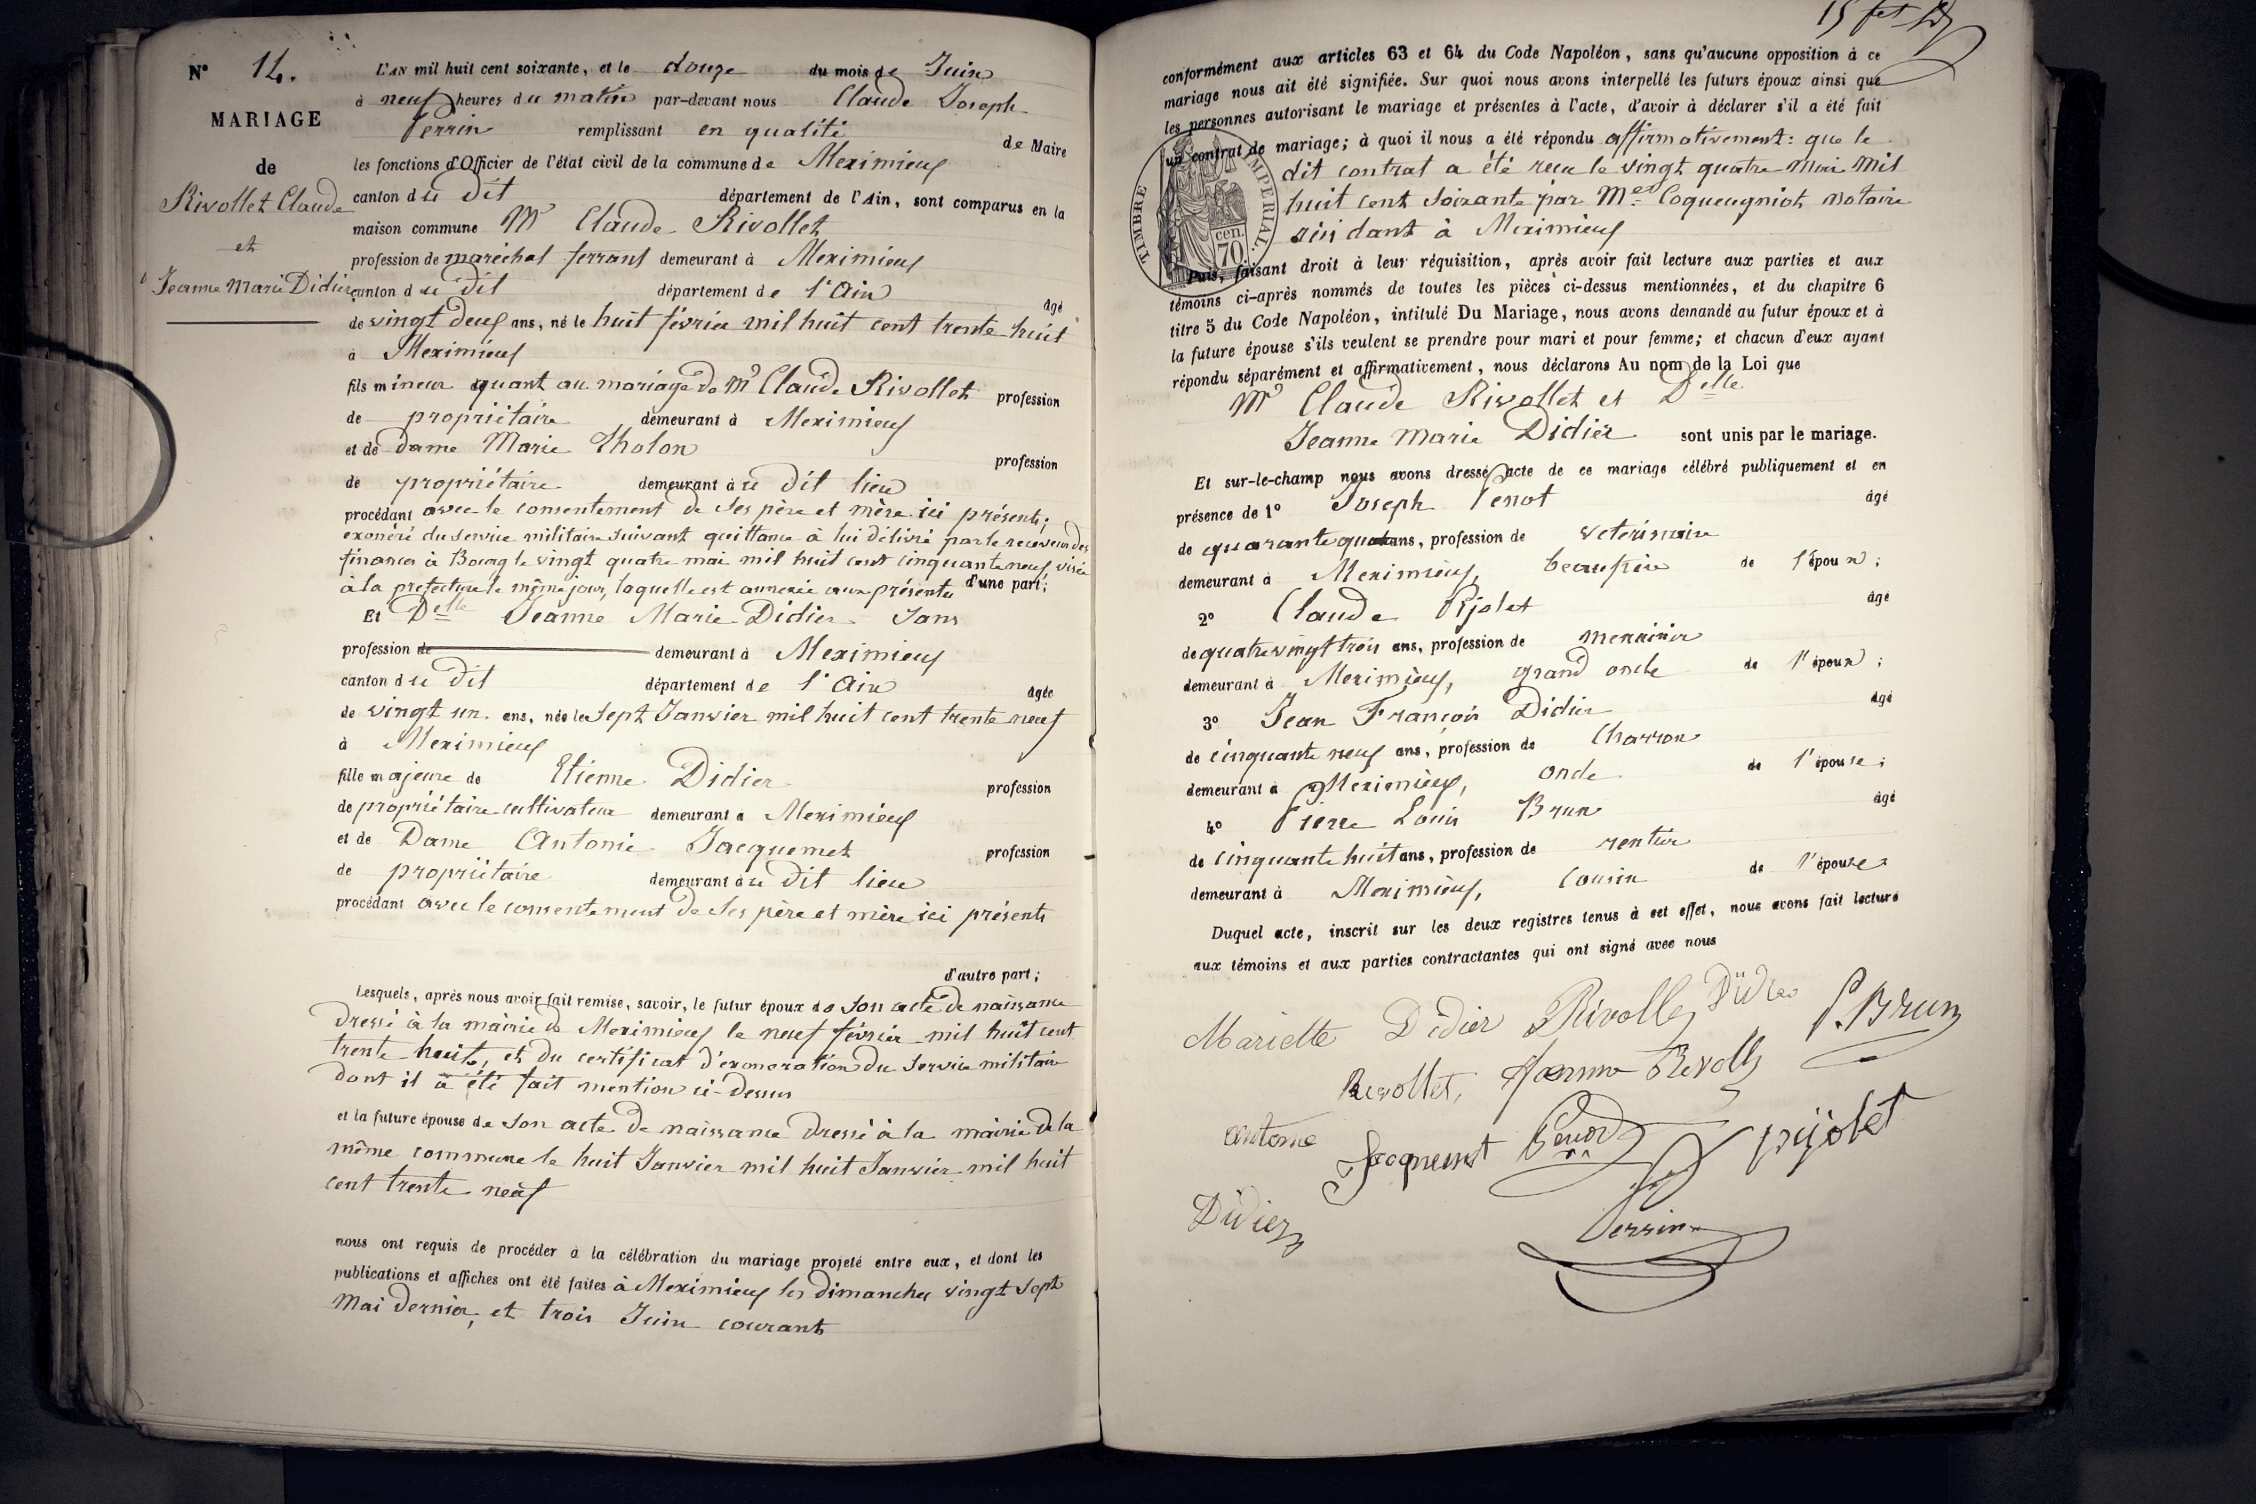 N° 14.
MARIAGE
de
Rivollet Claude
et
Jeanne Marie Didier
L'AN mil huit cent soixante, et le douze du mois de Juin
à neuf heures du matin par-devant nous Claude Joseph
Perrin remplissant en qualité de Maire
les fonctions d'Officier de l'état civil de la commune de Meximieux
canton du dit département de l'Ain, sont comparus en la
maison commune Mr Claude Rivollet
profession de maréchal ferrant demeurant à Meximieux
canton du dit département de l'Ain âgé
de vingt deux ans, né le huit février mil huit cent trente huit
à Meximieux
fils mineur quant au mariage de Mr Claude Rivollet profession
de propriétaire demeurant à Meximieux
et de dame Marie Tholon profession
de propriétaire demeurant au dit lieu
procédant avec le consentement de ses père et mère ici présents;
exonéré du service militaire suivant quittance à lui délivré par le receveur des
finances à Bourg le vingt quatre mai mil huit cent cinquante neuf visée
à la prefecture le même jour, laquelle est annexée aux présentes d'une part;
Et Delle Jeanne Marie Didier Sans
profession de demeurant à Meximieux
canton du dit département de l'Ain âgée
de vingt un ans, née le sept Janvier mil huit cent trente neuf
à Meximieux
fille majeure de Etienne Didier profession
de propriétaire cultivateur demeurant à Meximieux
et de Dame Antonie Jacquemet profession
de propriétaire demeurant au dit lieu
procédant avec le consentement de ses père et mère ici présents
d'autre part;
Lesquels, après nous avoir fait remise, savoir, le futur époux de son acte de naissance
dressé à la mairie de Meximieux le neuf février mil huit cent
trente huit, et du certificat d'exoneration du service militaire
dont il a été fait mention ci-dessus
et la future épouse de son acte de naissance dressé à la mairie de la
même commune le huit Janvier mil huit Janvier mil huit
cent trente neuf
nous ont requis de procéder à la célébration du mariage projeté entre eux, et dont les
publications et affiches ont été faites à Meximieux les dimanches vingt sept
mai dernier, et trois Juin courant
conformément aux articles 63 et 64 du Code Napoléon, sans qu'aucune opposition à ce
mariage nous ait été signifiée. Sur quoi nous avons interpellé les futurs époux ainsi que
les personnes autorisant le mariage et présentes à l'acte, d'avoir à déclarer s'il a été fait
un contrat de mariage; à quoi il nous a été répondu affirmativement: que le
dit contrat a été recu le vingt quatre mai mil
huit cent soixante par Me Coqueugniot notaire
résidant à Meximieux
TIMBRE IMPERIAL.
cen.
70
Puis, faisant droit à leur réquisition, après avoir fait lecture aux parties et aux
témoins ci-après nommés de toutes les pièces ci-dessus mentionnées, et du chapitre 6
titre 5 du Code Napoléon, intitulé Du Mariage, nous avons demandé au futur époux et à
la future épouse s'ils veulent se prendre pour mari et pour femme; et chacun d'eux ayant
répondu séparément et affirmativement, nous déclarons Au nom de la Loi que
Mr Claude Rivollet et Delle
Jeanne Marie Didier sont unis par le mariage.
Et sur-le-champ nous avons dressé acte de ce mariage célébré publiquement et en
présence de 1° Joseph Penot âgé
de quarante ans, profession de veterinaire
demeurant à Meximieux, beaufrère de l'époux;
2° Claude Pijolet âgé
de quatre vingt trois ans, profession de menuisier
demeurant à Meximieux, grand oncle de l'époux;
3° Jean François Didier âgé
de cinquante neuf ans, profession de Charron
demeurant à Meximieux, oncle de l'épouse;
4° Pierre Louis Brun âgé
de cinquante huit ans, profession de rentier
demeurant à Meximieux, Cousin de l'épouse
Duquel acte, inscrit sur les deux registres tenus à cet effet, nous avons fait lecture
aux témoins et aux parties contractantes qui ont signé avec nous
Mariette Didier Rivollet Didier P. Brun
Rivollet,
antonie Jacquemet Penot pijolet
Didier
Perrin